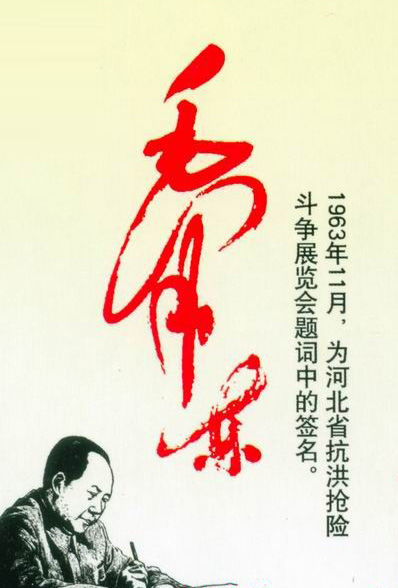 毛泽东
1963年11月，为河北省抗洪抢险
斗争展览会题词中的签名。